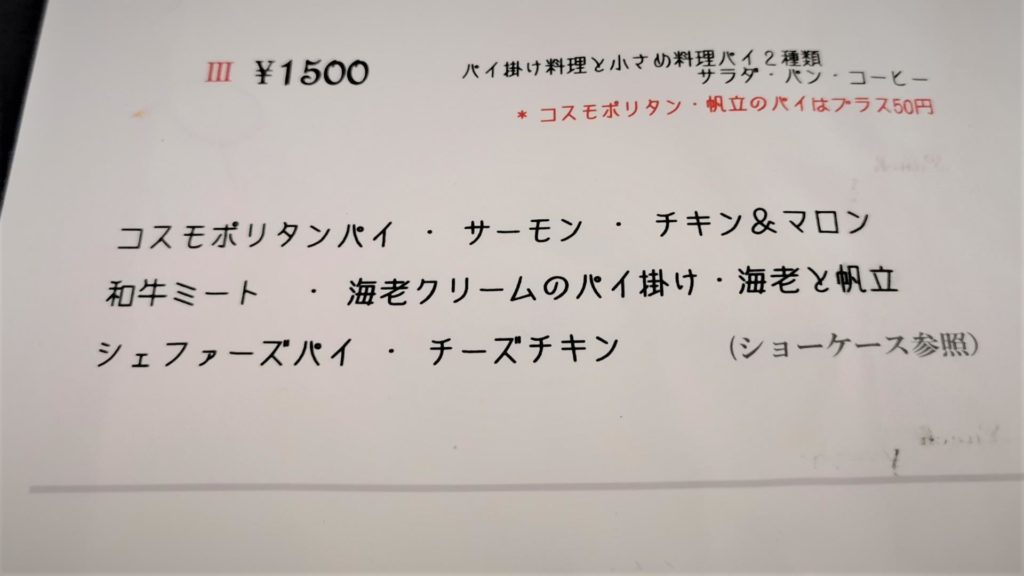 III ¥1500 パイ掛け料理と小さめ料理パイ2種類
サラダ・パン・コーヒー
* コスモポリタン・帆立のパイはプラス50円
コスモポリタンパイ ・ サーモン ・ チキン&マロン
和牛ミート ・ 海老クリームのパイ掛け・海老と帆立
シェファーズパイ ・ チーズチキン (ショーケース参照)